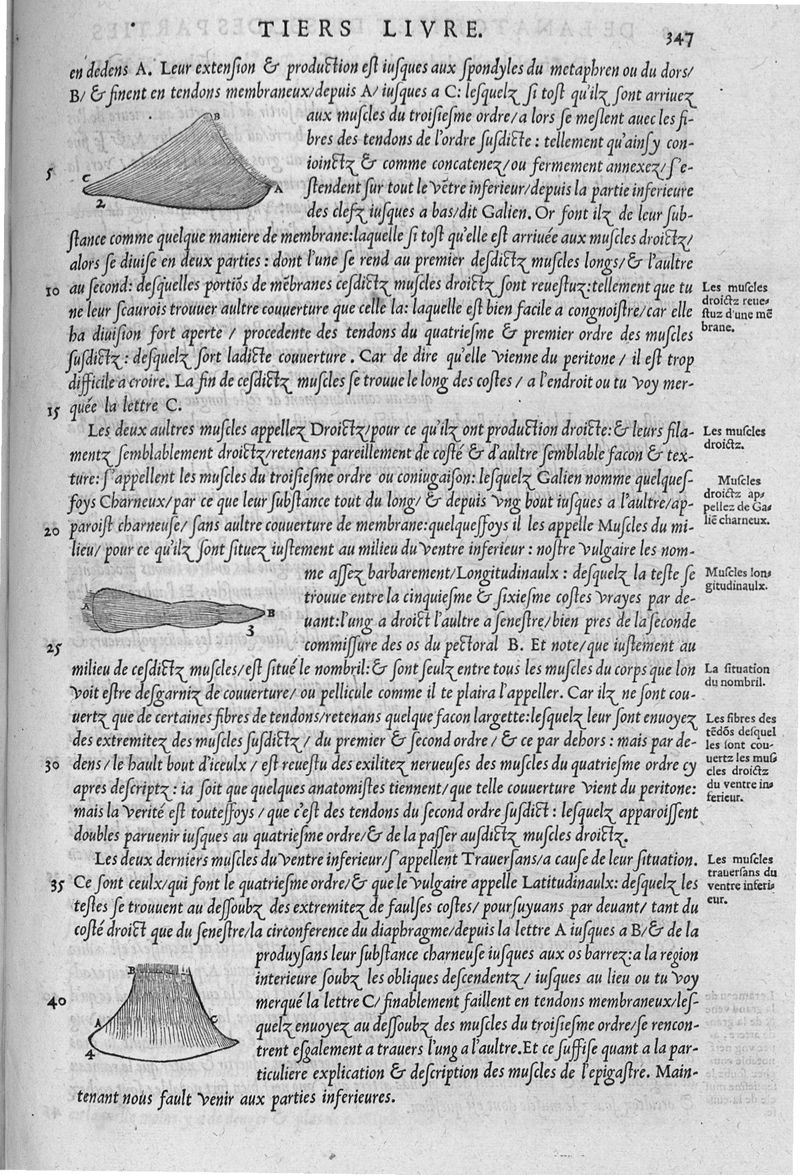 TIERS LIVRE.
347
en dedens A. Leur extension & production est iusques aux spondyles du metaphren ou du dors/
B/ & finent en tendons membraneux/depuis A/ iusques a C: lesquelz si tost qu'ilz sont arriuez
aux muscles du troisiesme ordre/a lors se meslent auec les fi-
bres des tendons de l'ordre susdicte: tellement qu'ainsy con-
ioinctz & comme concatenez/ou fermement annexez/s'e-
stendent sur tout le vẽtre inferieur/depuis la partie inferieure
des clefz iusques a bas/dit Galien. Or font ilz de leur sub-
B
C
A
2
5
stance comme quelque maniere de membrane:laquelle si tost qu'elle est arriuée aux muscles droictz/
alors se diuise en deux parties: dont l'une se rend au premier desdictz muscles longs/& l'aultre
10 au second: desquelles portiõs de mẽbranes cesdictz muscles droictz sont reuestuz:tellement que tu
ne leur scaurois trouuer aultre couuerture que celle la: laquelle est bien facile a congnoistre/car elle
ha diuision fort aperte / procedente des tendons du quatriesme & premier ordre des muscles
susdictz: desquelz sort ladicte couuerture. Car de dire qu'elle vienne du peritone / il est trop
difficile a croire. La fin de cesdictz muscles se trouue le long des costes / a l'endroit ou tu voy mer-
15 quée la lettre C.
Les muscles
droictz reue-
stuz d'une mẽ
brane.
Les deux aultres muscles appellez Droictz/pour ce qu'ilz ont production droicte:& leurs fila-
mentz semblablement droictz/retenans pareillement de costé & d'aultre semblable facon & tex-
ture: s'appellent les muscles du troisiesme ordre ou coniugaison: lesquelz Galien nomme quelques-
foys Charneux/par ce que leur substance tout du long/ & depuis vng bout iusques a l'aultre/ap-
20 paroist charneuse/ sans aultre couuerture de membrane:quelquesfoys il les appelle Muscles du mi-
lieu/ pour ce qu'ilz sont situez iustement au milieu du ventre inferieur: nostre vulgaire les nom-
me assez barbarement/Longitudinaulx: desquelz la teste se
trouue entre la cinquiesme & sixiesme costes vrayes par de-
uant:l'ung a droict l'aultre a senestre/bien pres de la seconde
25 commissure des os du pectoral B. Et note/que iustement au
A
B
3
Les muscles
droictz.
Muscles
droictz ap-
pellez de Ga-
liẽ charneux.
Muscles lon-
gitudinaulx.
milieu de cesdictz muscles/est situé le nombril:& sont seulz entre tous les muscles du corps que lon
voit estre desgarniz de couuerture/ou pellicule comme il te plaira l'appeller. Car ilz ne sont cou-
uertz que de certaines fibres de tendons/retenans quelque facon largette:lesquelz leur sont enuoyez
des extremitez des muscles susdictz/ du premier & second ordre / & ce par dehors: mais par de-
30 dens/le hault bout d'iceulx / est reuestu des exilitez nerueuses des muscles du quatriesme ordre cy
apres descriptz: ia soit que quelques anatomistes tiennent/que telle couuerture vient du peritone:
mais la verité est toutesfoys / que c'est des tendons du second ordre susdict: lesquelz apparoissent
doubles paruenir iusques au quatriesme ordre/& de la passer ausdictz muscles droictz.
La situation
du nombril.
Les fibres des
tẽdõs desquel
les sont cou-
uertz les mus
cles droictz
du ventre in-
ferieur.
Les deux derniers muscles du ventre inferieur/s'appellent Trauersans/a cause de leur situation.
35 Ce sont ceulx/qui font le quatriesme ordre/& que le vulgaire appelle Latitudinaulx: desquelz les
testes se trouuent au dessoubz des extremitez de faulses costes/ poursuyuans par deuant/ tant du
costé droict que du senestre/la circonference du diaphragme/depuis la lettre A iusques a B/& de la
produysans leur substance charneuse iusques aux os barrez:a la region
interieure soubz les obliques descendentz/ iusques au lieu ou tu voy
40 merqué la lettre C/ finablement faillent en tendons membraneux/les-
quelz enuoyez au dessoubz des muscles du troisiesme ordre/se rencon-
trent esgalement a trauers l'ung a l'aultre.Et ce suffise quant a la par-
ticuliere explication & description des muscles de l'epigastre. Main-
tenant nous fault venir aux parties inferieures.
B
A
C
4
Les muscles
trauersans du
ventre inferi-
eur.